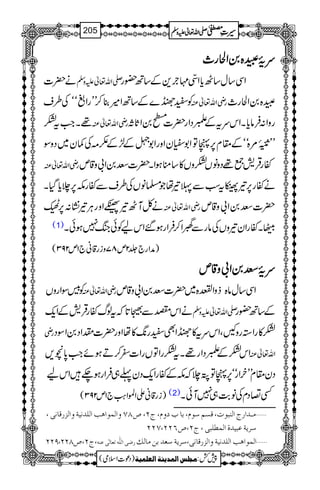 سیرتِ مصطفیٰ صلی اللہ تعالیٰ علیہ وسلم 205
سریۂ عبیدہ بن الحارث
اسی سال ساٹھ یا اسّی مہاجرین کے ساتھ حضور صلی اللہ تعالیٰ علیہ وسلم نے حضرت
عبیدہ بن الحارث رضی اللہ تعالیٰ عنہ کو سفید جھنڈے کے ساتھ امیر بنا کر ’’رابغ‘‘ کی طرف
روانہ فرمایا۔ اس سریہ کے علمبردار حضرت مسطح بن اثاثہ رضی اللہ تعالیٰ عنہ تھے۔ جب یہ لشکر
’’ثنیۂ مرہ‘‘ کے مقام پر پہنچا تو ابوسفیان اور ابوجہل کے لڑکے عکرمہ کی کمان میں دو سو
کفار قریش جمع تھے دونوں لشکروں کا سامنا ہوا۔ حضرت سعد بن ابی وقاص رضی اللہ تعالیٰ عنہ
نے کفار پر تیر پھینکا یہ سب سے پہلا تیر تھا جو مسلمانوں کی طرف سے کفار مکہ پر چلایا گیا۔
حضرت سعد بن ابی وقاص رضی اللہ تعالیٰ عنہ نے کل آٹھ تیر پھینکے اور ہر تیر نشانہ پر ٹھیک
بیٹھا۔ کفار ان تیروں کی مار سے گھبرا کر فرار ہو گئے اس لیے کوئی جنگ نہیں ہوئی۔ (1)
(مدارج جلد۲ ص۷۸ و زرقانی ج۱ ص۳۹۲)
سریۂ سعد بن ابی وقاص
اسی سال ماہ ذوالقعدہ میں حضرت سعد بن ابی وقاص رضی اللہ تعالیٰ عنہ کو بیس سواروں
کے ساتھ حضور صلی اللہ تعالیٰ علیہ وسلم نے اس مقصد سے بھیجا تاکہ یہ لوگ کفار قریش کے ایک
لشکر کا راستہ روکیں، اس سریہ کا جھنڈا بھی سفید رنگ کا تھا اور حضرت مقداد بن اسود رضی
اللہ تعالیٰ عنہ اس لشکر کے علمبردار تھے۔ یہ لشکر راتوں رات سفر کرتے ہوئے جب پانچویں
دن مقام ’’خرار‘‘ پر پہنچا تو پتہ چلا کہ مکہ کے کفار ایک دن پہلے ہی فرار ہو چکے ہیں اس لیے
کسی تصادم کی نوبت ہی نہیں آئی۔ (2) (زرقانی علی المواہب ج۱ ص۳۹۲)
......مدارج النبوت، قسم سوم، باب دوم، ج۲، ص۷۸ والمواھب اللدنیۃ والزرقانی،
سریۃ عبیدۃ المطلبی، ج۲، ص۲۲۶، ۲۲۷
......المواھب اللدنیۃ والزرقانی، سریۃ سعد بن مالک رضی اللہ تعالٰی عنہ، ج۲، ص۲۲۸، ۲۲۹
پیش کش: مجلس المدینۃ العلمیۃ (دعوت اسلامی)